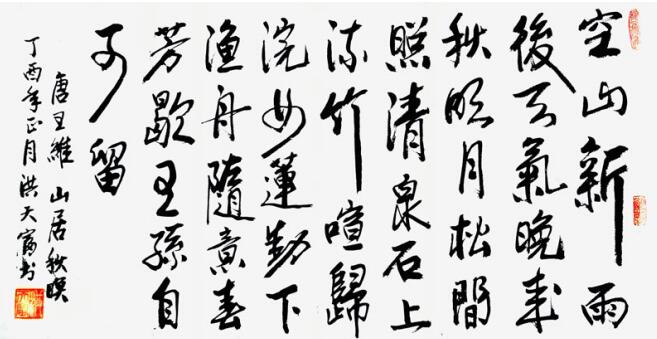 空山新雨
後天氣晚来
秋明月松間
照清泉石上
流竹喧歸
浣女蓮動下
渔舟隨意春
芳歇王孫自
可留
唐王維 山居秋暝
丁酉年正月洪天富书